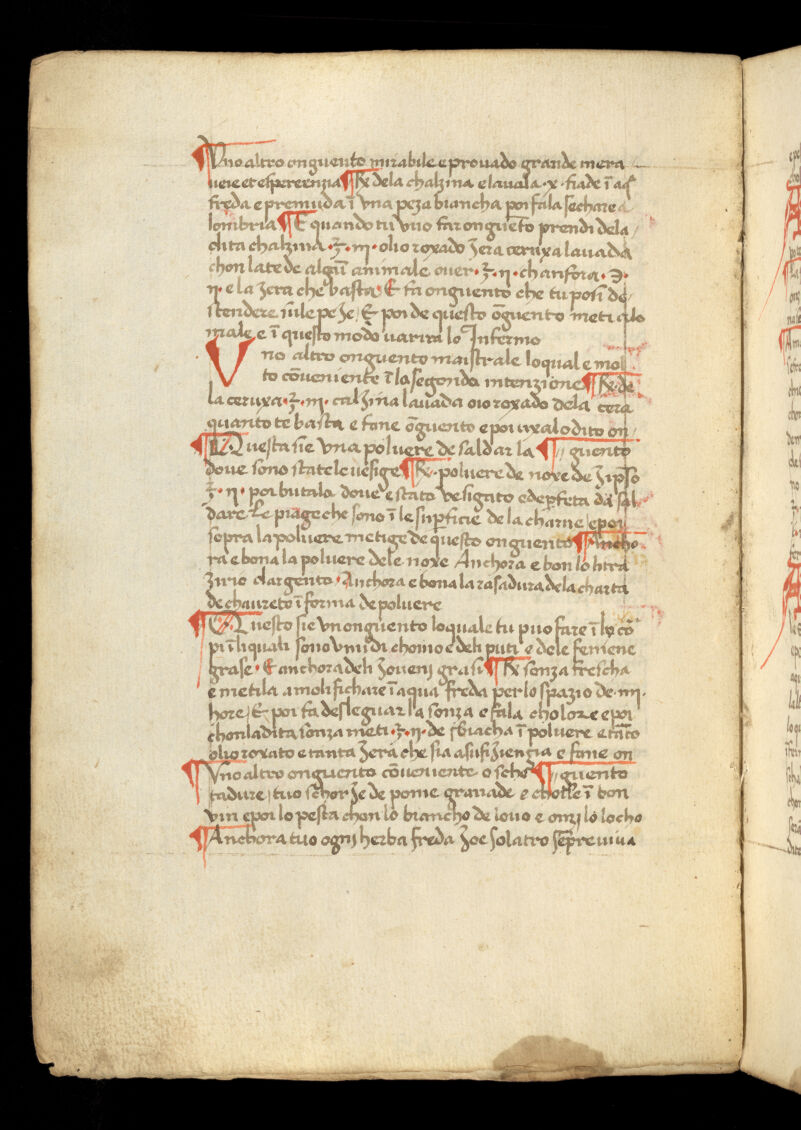 Vno altro onguento mirabile e prouado grande mera
ueie et espererenzia ¶ ℞ dela chalzina e lauala · x · fiade ī aq̄
freda e premuda ī vna peza biancha poi fala sechare a
lombria ¶ E quando tu vuo far onguēto prendi dela
dita chalzina · ʒ · iij · olio roxado zera ceruxa lauada
chon late de algun̄ animale ouer · ʒ · ij · chanfora · ℈ ·
ij · e la zera che basta · E fa onguento che tu posi de
stendere sūle peze / E poi de questo ōguento meti alo
male e ī questo modo uarira lo Infermo
Vno altro onguento maistrale loqual e mol
to cōueniente ī la segonda intenzione ¶ ℞ · de
la ceruxa · ʒ · iij · calzina lauada oio roxado dela cera
quanto te basta e fane ōguento e poi uxalo dito on /
¶ Questa sie vna poluere de saldar la ¶ // guento
doue sono state le uesige ¶ ℞ · poluere de noxe de zipso
ʒ · ij · poi butala doue e stato uesigato ed e perfeta da sal
dare le piage che sono ī le superficie de la charne e poi
sopra la poluere metige de questo onguento ¶ Ancho
ra e bona la poluere dele noxe Anchora e bon lo litra
zirio dargento · Anchora e bona la rasadura dela charta
de chaureto ī forma de poluere
¶ Questo sie vn onguento loquale tu puo fare ī ly cō
pi ī li quali sono vmidi chomo e deli puti e dele femene
grase · E anchora deli zoueni grasi ¶ ℞ sonza frescha
e metila a molifichare ī aqua freda per lo spazio de · iij ·
hore / E poi fa desleguar la sonza e fala cholare e poi
chon la dita sonza meti · ʒ · ij · de tbiacha ī poluere e tāto
olio roxato e tanta zera che sia asufizienzia e fane on
¶ Vno altro onguento cōueniente o scho ¶ // guento
tadure / tuo schorze de pome granade e chotle ī bon
vin e poi lo pesta chon lo biancho de louo e onzi lo locho
¶ Anchora tuo ogni herba freda zoe solatro sēpreuiua